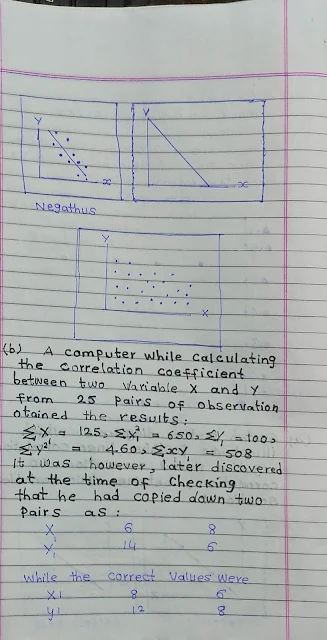 Y
x
Y
x
Negathus
Y
X
(b) A computer while calculating
the correlation coefficient
between two variable X and Y
from 25 pairs of observation
otained the results:
ΣX = 125, ΣX² = 650, ΣY = 100,
ΣY² = 4.60, Σxy = 508
it was however, later discovered
at the time of checking
that he had copied down two
pairs as :
X 6 8
Y 14 6
while the correct values were
X 8 6
Y 12 8